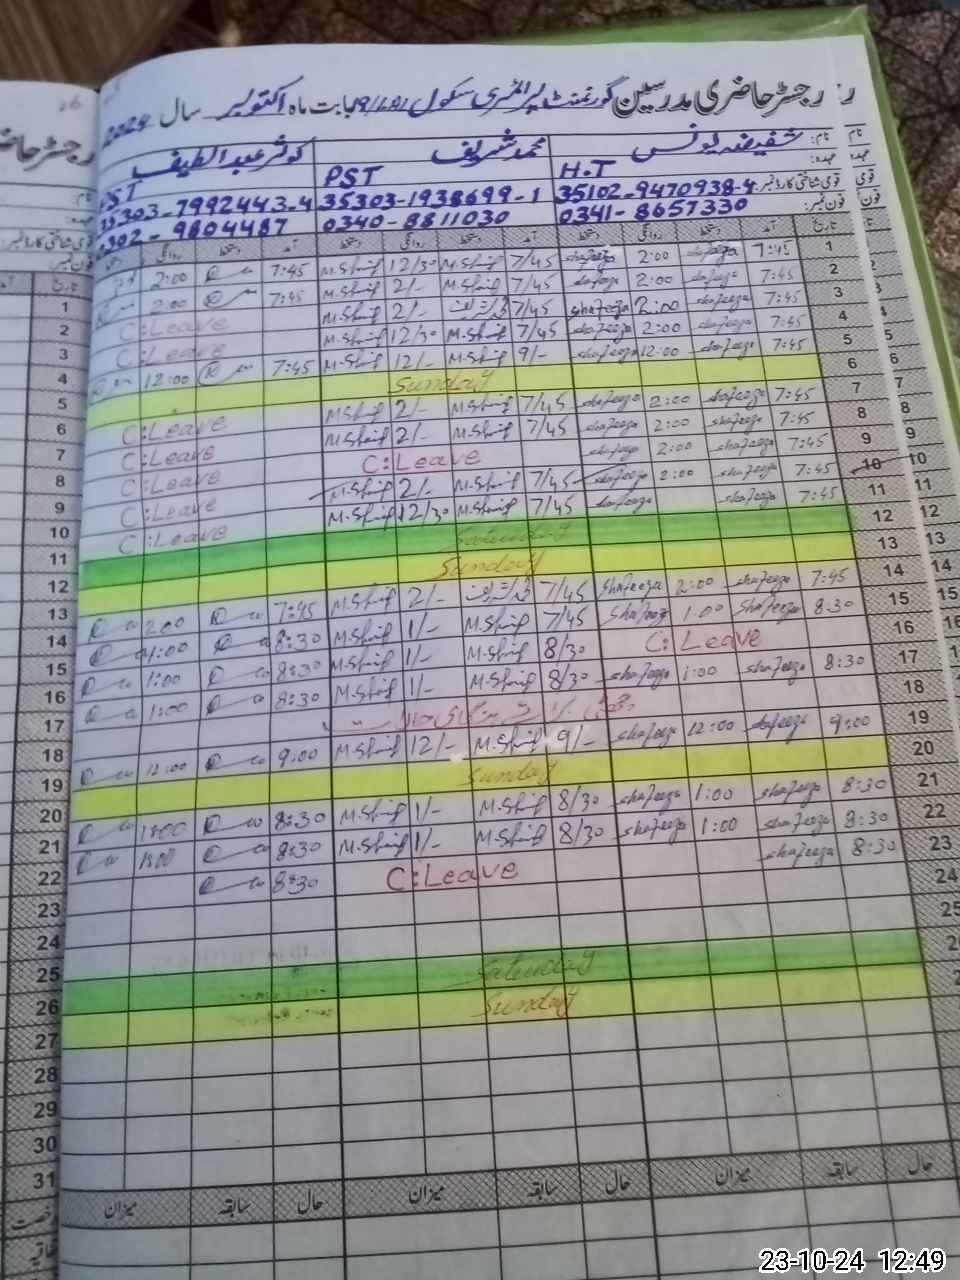 رجسٹر حاضری مدرسین گورنمنٹ پرائمری سکول 19/1.R بابت ماہ اکتوبر سال 2024
نام: شفیضہ یونس محمد شریف کوثر عبدالطیف
عہدہ: H.T PST PST
قومی شناختی کارڈ نمبر: 35102-9470938-4 35303-1938699-1 35303-7992443-4
فون نمبر: 0341-8657330 0340-8811030 0302-9804487
تاریخ آمد دستخط روانگی دستخط آمد دستخط روانگی دستخط آمد دستخط روانگی دستخط
1 7:45 shafeeza 2:00 shafeeza 7/45 M.Sharif 12/30 M.Sharif 7:45 2:00
2 7:45 shafeeza 2:00 shafeeza 7/45 M.Sharif 2/- M.Sharif 7:45 2:00
3 7:45 shafeeza 2:00 shafeeza 7/45 محمد شریف 2/- M.Sharif C:Leave
4 7:45 shafeeza 2:00 shafeeza 7/45 M.Sharif 12/30 M.Sharif C:Leave
5 7:45 shafeeza 12:00 shafeeza 9/- M.Sharif 12/- M.Sharif 7:45 12:00
6 Sunday
7 7:45 shafeeza 2:00 shafeeza 7/45 M.Sharif 2/- M.Sharif C:Leave
8 7:45 shafeeza 2:00 shafeeza 7/45 M.Sharif 2/- M.Sharif C:Leave
9 7:45 shafeeza 2:00 shafeeza C:Leave C:Leave
10 7:45 shafeeza 2:00 shafeeza 7/45 M.Sharif 2/- M.Sharif C:Leave
11 7:45 shafeeza shafeeza 7/45 M.Sharif 12/30 M.Sharif C:Leave
12 Saturday
13 Sunday
14 7:45 shafeeza 2:00 Shafeeza 7/45 محمد شریف 2/- M.Sharif 7:45 2:00
15 8:30 Shafeeza 1:00 Shafeeza 7/45 M.Sharif 1/- M.Sharif 8:30 1:00
16 C:Leave 8/30 M.Sharif 1/- M.Sharif 8:30 1:00
17 8:30 shafeeza 1:00 shafeeza 8/30 M.Sharif 1/- M.Sharif 8:30 1:00
18
19 9:00 shafeeza 12:00 shafeeza 9/- M.Sharif 12/- M.Sharif 9:00 12:00
20 Sunday
21 8:30 shafeeza 1:00 shafeeza 8/30 M.Sharif 1/- M.Sharif 8:30 1:00
22 8:30 shafeeza 1:00 shafeeza 8/30 M.Sharif 1/- M.Sharif 8:30 1:00
23 8:30 shafeeza C:Leave 8:30
24
25
Saturday
Sunday
حال سابقہ میزان حال سابقہ میزان حال سابقہ میزان
23-10-24 12:49